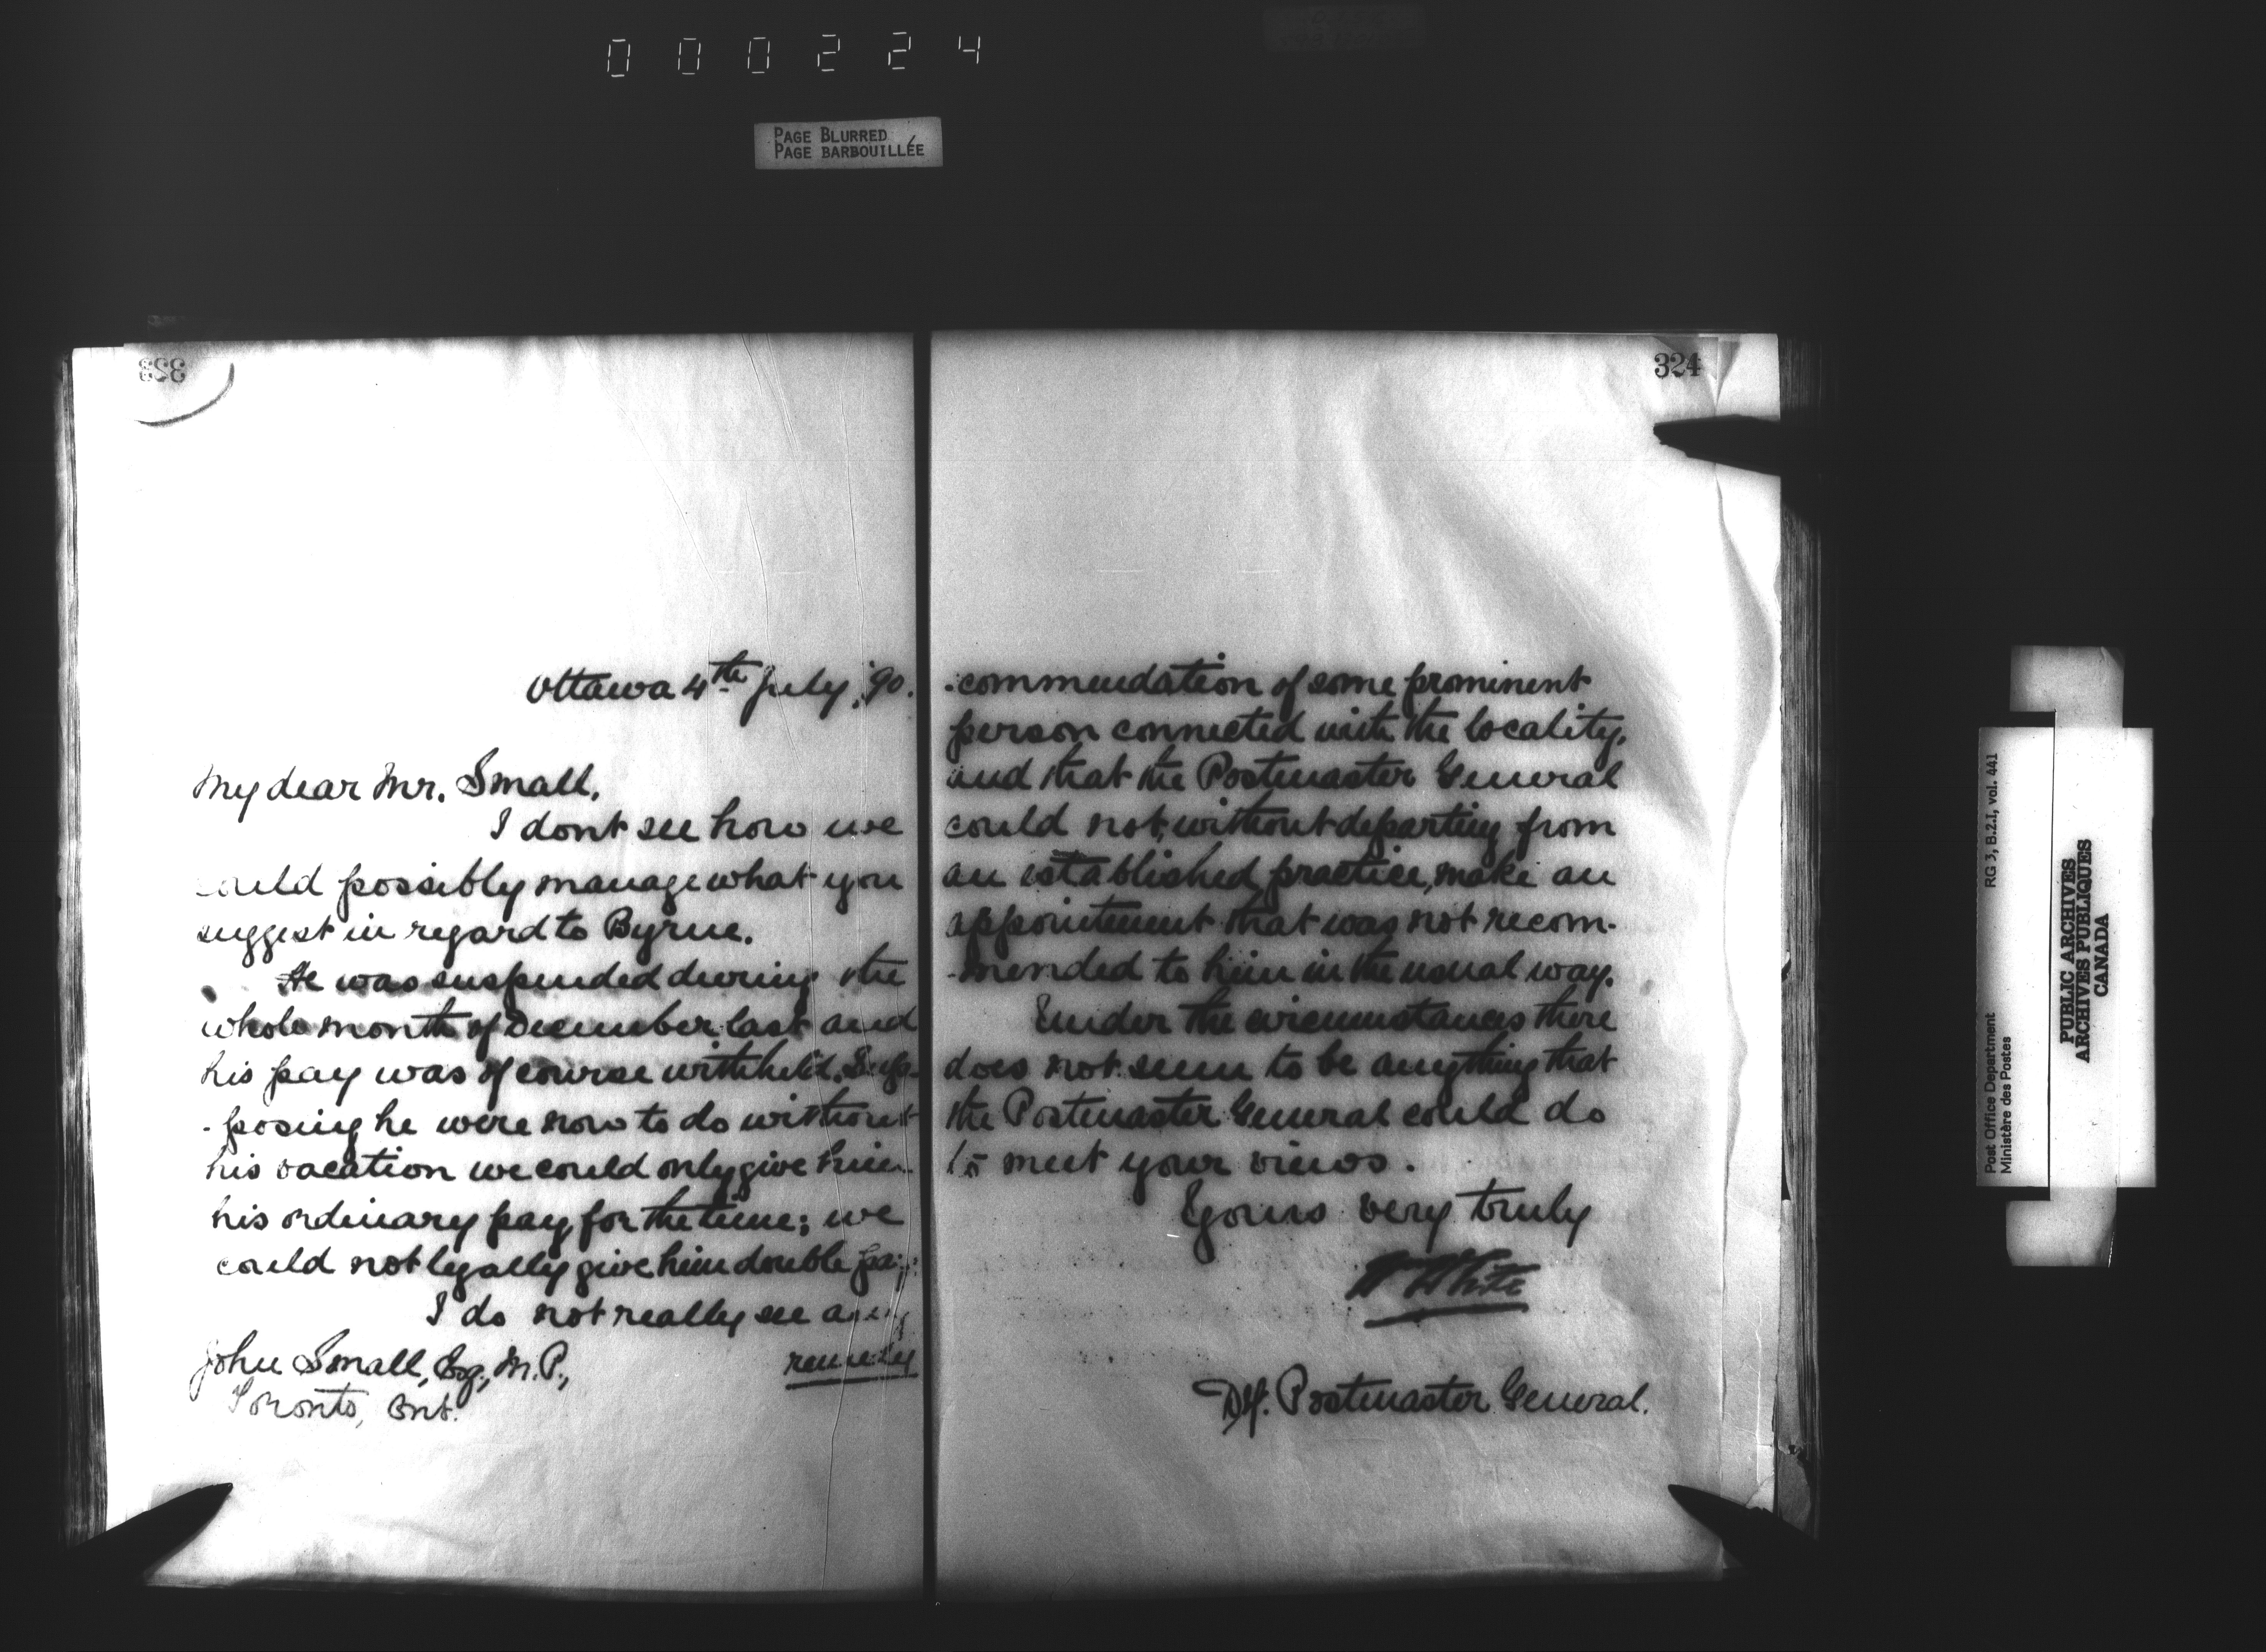 000224
PAGE BLURRED
PAGE BARBOUILLÉE
323
Ottawa 4th July, '90.
My dear Mr. Small,
I dont see how we
could possibly manage what you
suggest in regard to Byrne.
He was suspended during the
whole month of December last and
his pay was of course withheld. Sup-
-posing he were now to do without
his vacation we could only give him
his ordinary pay for the time; we
could not legally give him double pay.
I do not really see any
remedy
John Small, Esq., M.P.,
Toronto, Ont.
324
-commendation of some prominent
person connected with the locality,
and that the Postmaster General
could not, without departing from
an established practice, make an
appointment that was not recom-
-mended to him in the usual way.
Under the circumstances there
does not seem to be anything that
the Postmaster General could do
to meet your views.
Yours very truly
W White
Dy. Postmaster General.
Post Office Department
Ministère des Postes
RG 3, B.2.I, vol. 441
PUBLIC ARCHIVES
ARCHIVES PUBLIQUES
CANADA